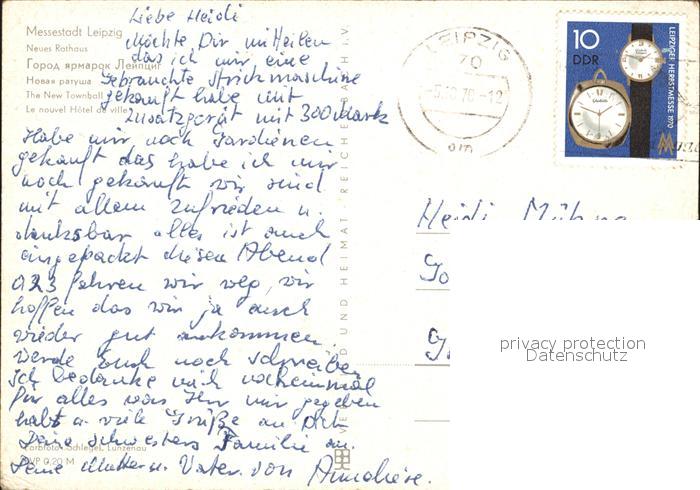 Liebe Heidi
Messestadt Leipzig
Neues Rathaus
Город ярмарок Лейпциг
Новая ратуша
The New Townhall
Le nouvel Hôtel de ville
Möchte Dir mitteilen
das ich mir eine
gebrauchte Strickmaschine
gekauft habe mit
Zusatzgerät mit 300 Mark
Habe mir noch Gardienen
gekauft das habe ich mir
noch gekauft wir sind
mit allem zufrieden u.
dankbar alles ist auch
eingepackt diesen Abend
023 fahren wir weg, wir
hoffen das wir ja auch
wieder gut ankommen.
Werde Euch noch schreiben
ich bedanke mich nocheinmal
für alles was Ihr mir gegeben
habt u. viele Grüße an Dich
Deine Schwester Familie an.
Deine Mutter u. Vater. von
Farbfoto: Schlegel, Lunzenau
EVP 0,20 M
UND HEIMAT REICHENBACH I.V.
LEIPZIG
70
10
DDR
LEIPZIGER HERBSTMESSE 1970
Heidi
privacy protection
Datenschutz